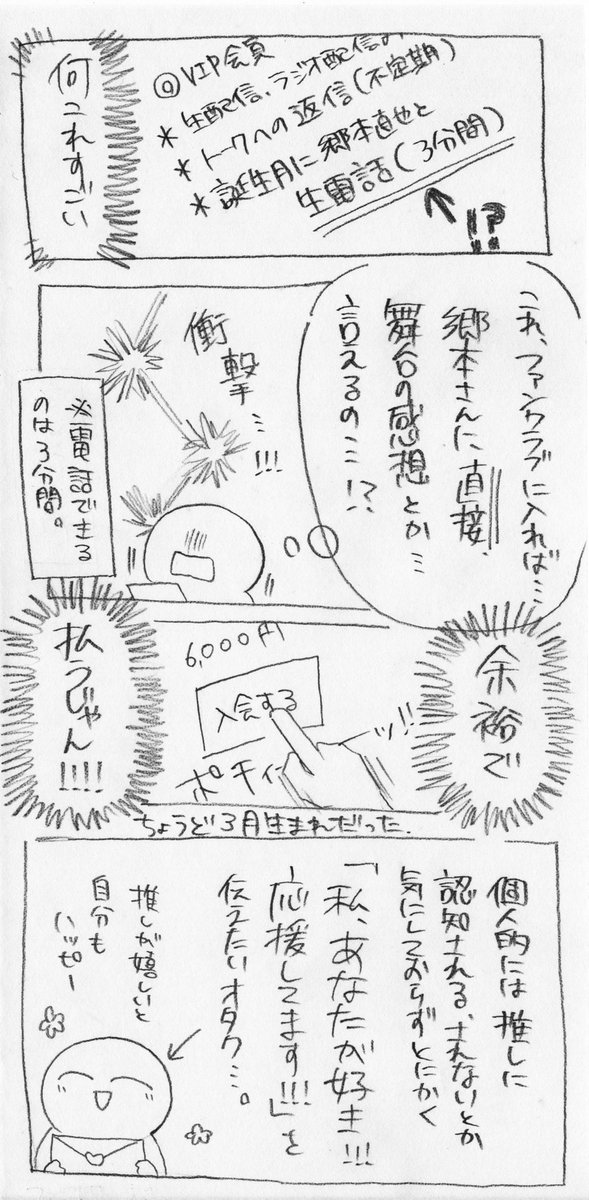 ◎VIP会員
*生配信、ラジオ配信の
*トークへの返信(不定期)
*誕生月に郷本直也と
生電話(3分間)
!?
何これすごい
これ、ファンクラブに入れば…
郷本さんに、直接、
舞台の感想とか…
言えるの…!?
衝撃…!!!
※電話できる
のは3分間。
余裕で
6,000円
入会する
ポチィーッ!!
払うじゃん!!!!
ちょうど3月生まれだった.
個人的には推しに
認知される、されないとか
気にしておらずとにかく
「私、あなたが好き!!!
応援してます!!!」を
伝えたいオタク…。
推しが嬉しいと
自分も
ハッピー